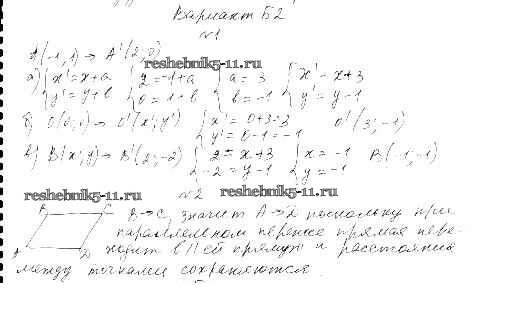 Вариант Б2
№1
A(-1, 1) → A'(2; 0)
reshebnik5-11.ru
а) { x' = x + a  y' = y + b { 2 = -1 + a  0 = 1 + b { a = 3  b = -1 { x' = x + 3  y' = y - 1
б) O(0; 0) → O'(x'; y') { x' = 0 + 3 = 3  y' = 0 - 1 = -1 O'(3; -1)
в) B(x; y) → B'(2; -2) { 2 = x + 3  -2 = y - 1 { x = -1  y = -1 B(-1; -1)
reshebnik5-11.ru №2 reshebnik5-11.ru
B C B → C, значит A → D поскольку при
параллельном переносе прямая пере-
A D ходит в || ей прямую и расстояния
между точками сохраняются.